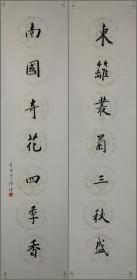 東籬叢菊三秋盛
南國奇花四季香